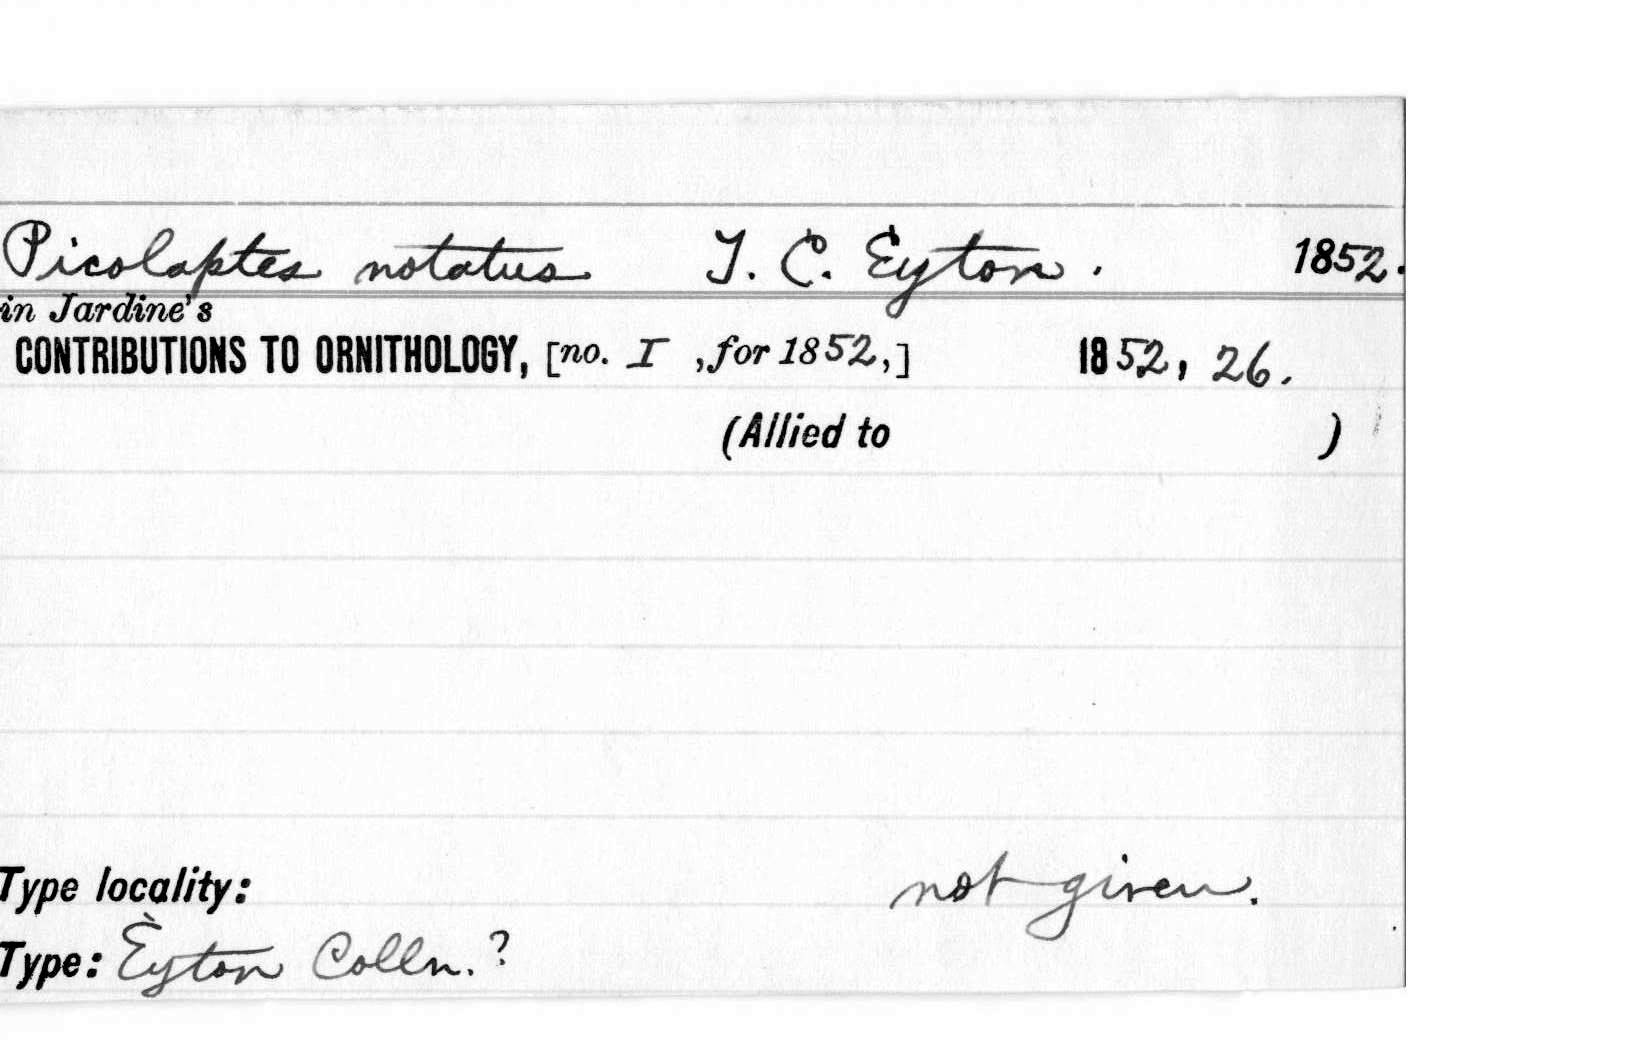 Picolaptes notatus T. C. Eyton. 1852.
in Jardine's
CONTRIBUTIONS TO ORNITHOLOGY, [no. I , for 1852,] 1852, 26.
(Allied to )
Type locality: not given.
Type: Eyton Colln.?